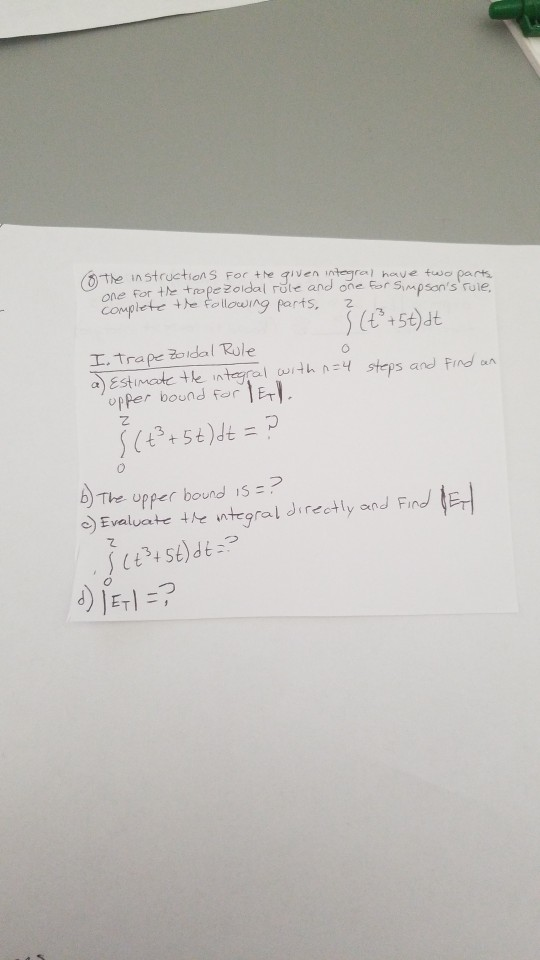 ⑧ The instructions for the given integral have two parts
one for the trapezoidal rule and one for Simpson's rule,
complete the following parts. ∫₀² (t³+5t)dt
I. Trapezoidal Rule
a) Estimate the integral with n=4 steps and find an
upper bound for |E_T|.
∫₀² (t³+5t)dt = ?
b) The upper bound is = ?
c) Evaluate the integral directly and Find |E_T|
∫₀² (t³+5t)dt = ?
d) |E_T| = ?